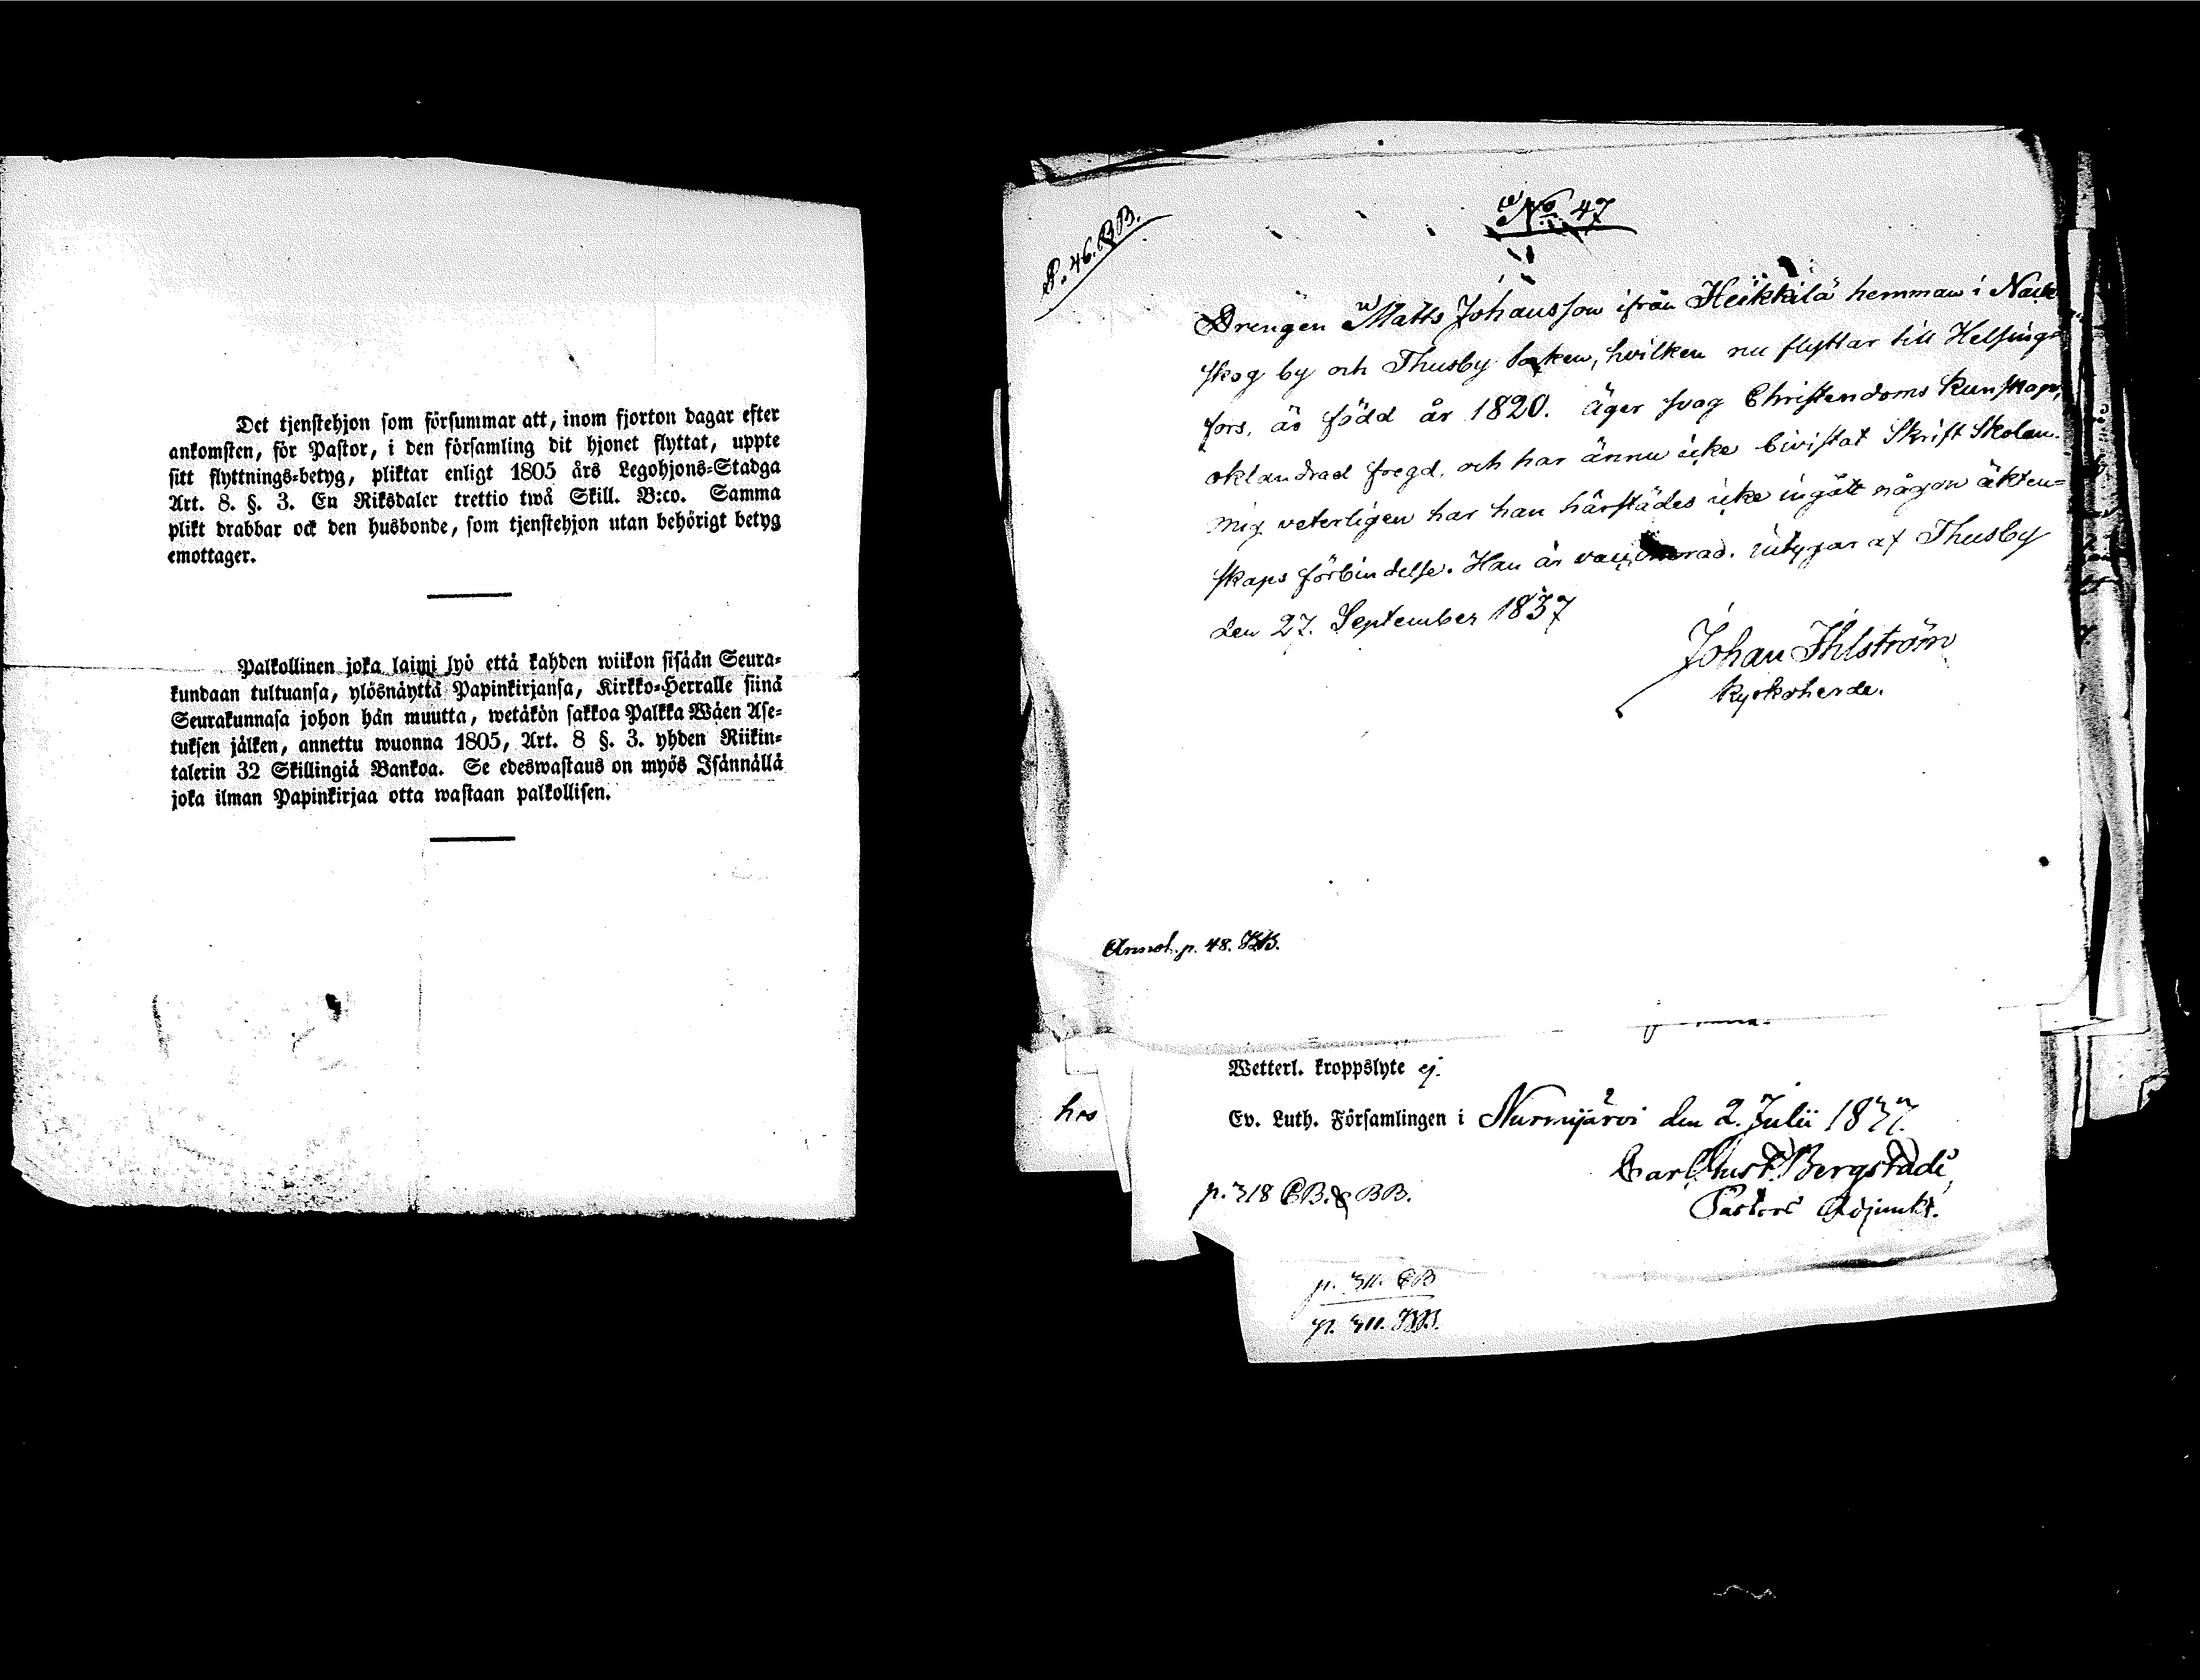 Det tjenstehjon som försummar att, inom fjorton dagar efter
ankomsten, för Pastor, i den församling dit hjonet flyttat, uppte
sitt flyttnings-betyg, pliktar enligt 1805 års Legohjons-Stadga
Art. 8. §. 3. En Riksdaler trettio twå Skill. B:co. Samma
plikt drabbar ock den husbonde, som tjenstehjon utan behörigt betyg
emottager.
Palkollinen joka laimi lyö että kahden wiikon sisään Seura-
kundaan tultuansa, ylösnäyttä Papinkirjansa, Kirkko-Herralle siinä
Seurakunnasa johon hän muutta, wetäkön sakkoa Palkka Wäen Ase-
tuksen jälken, annettu wuonna 1805, Art. 8 §. 3. yhden Riikin-
talerin 32 Skillingiä Bankoa. Se edeswastaus on myös Isännällä
joka ilman Papinkirjaa otta wastaan palkollisen.
P. 46. BB.
No 47
Drengen Matts Johansson ifrån Heikkilä hemman i
skog by och Thusby Soken, hvilken nu flyttar till Helsing-
fors, är född år 1820. äger svag Christendoms kunskap,
oklandrad fregd, och har ännu icke bivistat Skrift Skolan.
Mig veterligen har han härstädes icke ingått någon äkten-
skaps förbindelse. Han är intygar af Thusby
den 27. September 1837
Johan Ihlström
kyrkoherde.
Annot. p. 48. BB.
Wetterl. kroppslyte ej.
hos
Ev. Luth. Församlingen i Nurmijärvi den 2. Julii 1837.
Carl Gust. Bergstadi,
Pastors Adjunkt.
p. 318 CB. & BB.
p. 311. CB
p. 311. BB.